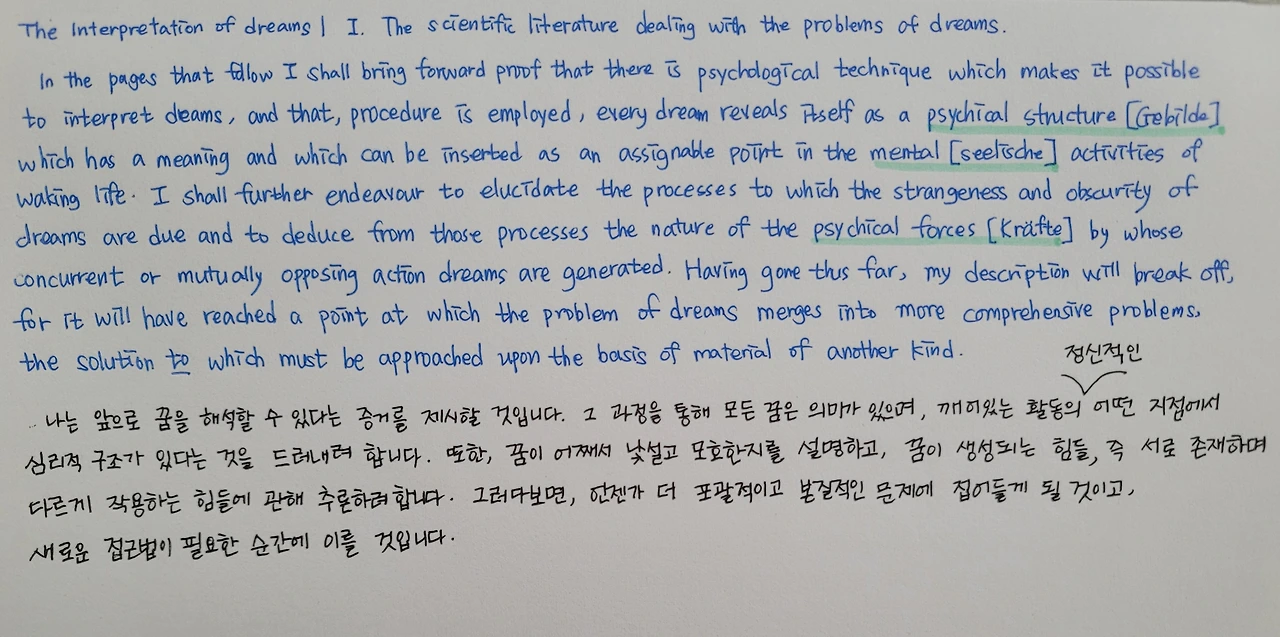 The Interpretation of dreams | I. The scientific literature dealing with the problems of dreams.
In the pages that follow I shall bring forward proof that there is psychological technique which makes it possible
to interpret deams, and that, procedure is employed, every dream reveals itself as a psychical structure [Gebilde]
which has a meaning and which can be inserted as an assignable point in the mental [seelische] activities of
waking life. I shall further endeavour to elucidate the processes to which the strangeness and obscurity of
dreams are due and to deduce from those processes the nature of the psychical forces [Kräfte] by whose
concurrent or mutually opposing action dreams are generated. Having gone thus far, my description will break off,
for it will have reached a point at which the problem of dreams merges into more comprehensive problems,
the solution to which must be approached upon the basis of material of another kind.
정신적인
나는 앞으로 꿈을 해석할 수 있다는 증거를 제시할 것입니다. 그 과정을 통해 모든 꿈은 의미가 있으며, 깨어있는 활동의 어떤 지점에서
심리적 구조가 있다는 것을 드러내려 합니다. 또한, 꿈이 어째서 낯설고 모호한지를 설명하고, 꿈이 생성되는 힘들, 즉 서로 존재하며
다르게 작용하는 힘들에 관해 추론하려합니다. 그러다보면, 언젠가 더 포괄적이고 본질적인 문제에 접어들게 될 것이고,
새로운 접근법이 필요한 순간에 이를 것입니다.